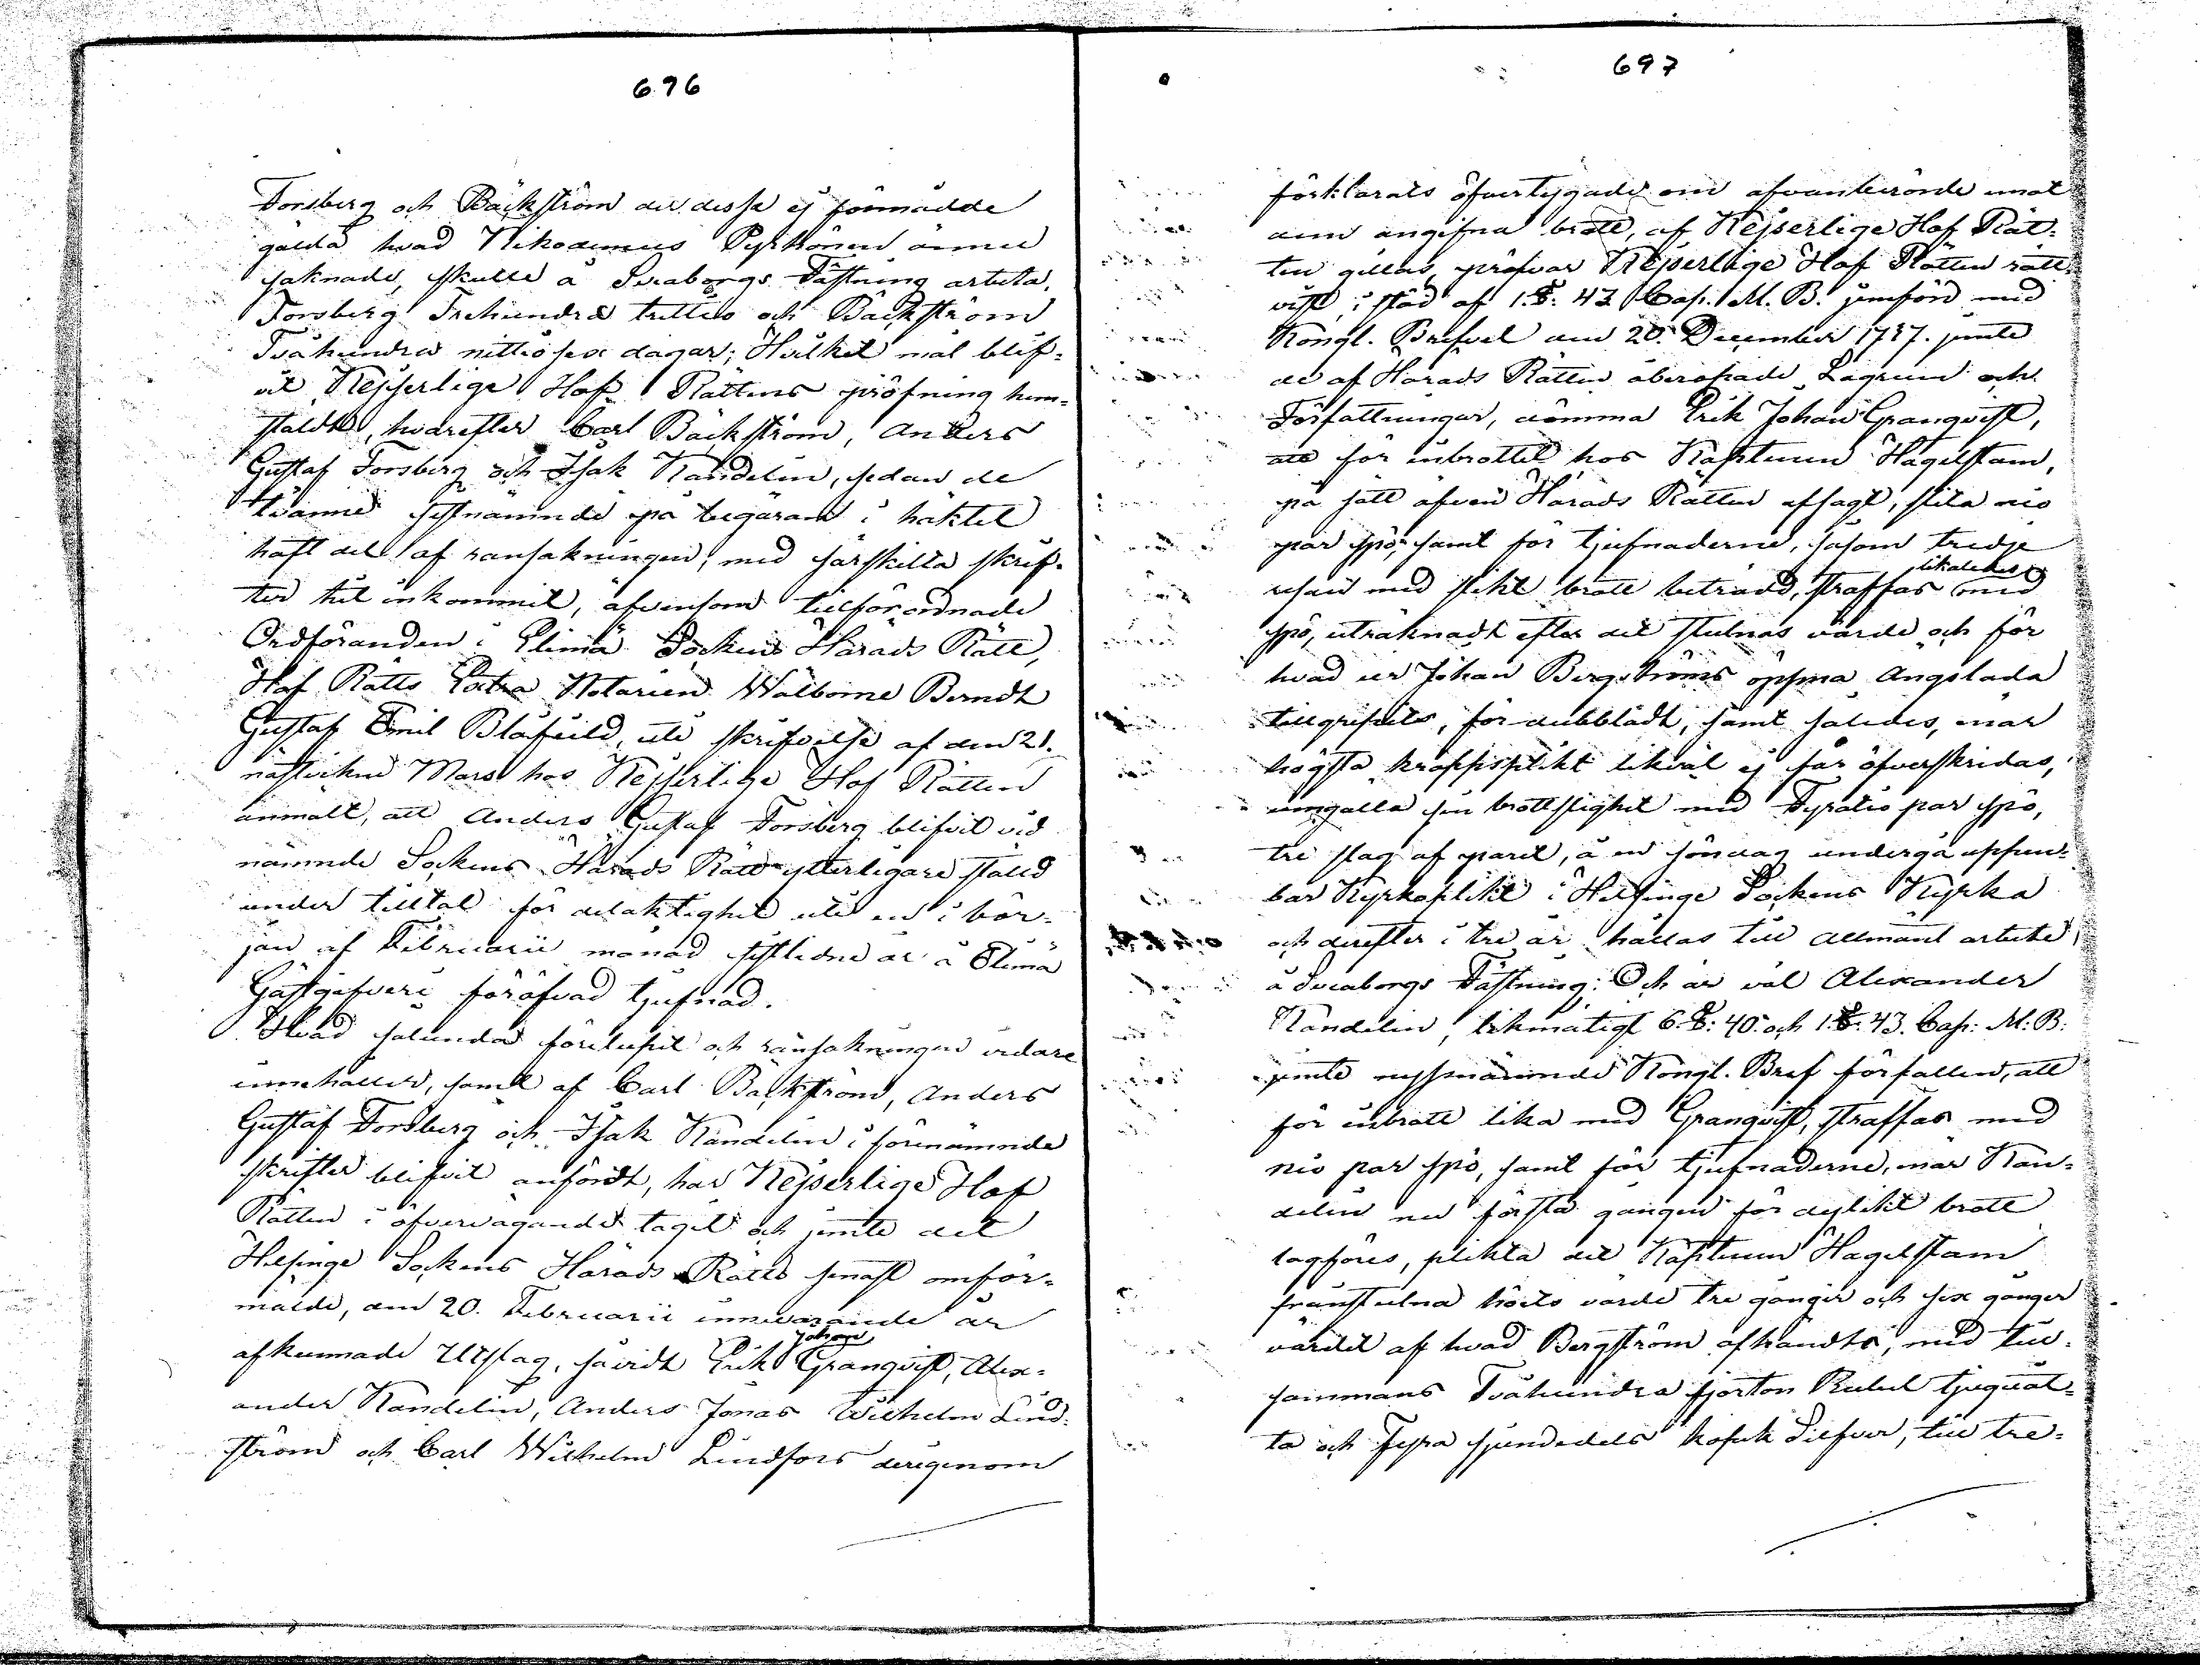 696
Forsberg och Bäckström der desse ej förmådde
gälda hvad Nikodemus Pyrhönen ännu
saknade, skulle å Sveaborgs Fästning arbeta,
Forsberg Trehundra trettio och Bäckström
Tvåhundra nittiosex dagar; Hvilket mål blif-
vit Kejserlige Hof Rättens pröfning hem-
stäldt, hvarefter Carl Bäckström, Anders
Gustaf Forsberg och Isak Kandelin, sedan de
tvänne sistnämnde på begäran i häktet
haft del af ransakningen, med särskilta skrif-
ter hit inkommit, äfvensom tillförordnade
Ordföranden i Elimä Sockens Härads Rätt,
Hof Rätts Extra Notarien Wälborne Berndt
Gustaf Emil Blåfield, uti skrifvelse af den 21.
nästvikne Mars hos Kejserlige Hof Rätten
anmält, att Anders Gustaf Forsberg blifvit vid
nämnde Sockens Härads Rätt ytterligare stäld
under tilltal för delaktighet uti en i bör-
jan af Februarii månad sistlidne år å Elimä
Gästgifveri föröfvad tjufnad.
Hvad sålunda förelupit och ransakningen vidare
innehåller, samt af Carl Bäckström, Anders
Gustaf Forsberg och Isak Kandelin i förenämnde
skrifter blifvit anfördt, har Kejserlige Hof
Rätten i öfvervägande tagit och jemte det
Helsinge Sockens Härads Rätts senast omför-
mälde, den 20. Februarii innevarande år
afkunnade Utslag, såvidt Erik Johan Granqvist, Alex-
ander Kandelin, Anders Jonas Wilhelm Lind-
ström och Carl Wilhelm Lindfors derigenom
697
förklarats öfvertygade om ofvanberörde emot
dem angifna brott, af Kejserlige Hof Rät-
ten gillas, pröfvar Kejserlige Hof Rätten rätt-
vist, i stöd af 1.§: 43 Cap. M. B. jemförd med
Kongl. Brefvet den 20. December 1787. jemte
de af Härads Rätten åberopade Lagrum och
Författningar, döma Erik Johan Granqvist,
att för inbrottet hos Kaptenen Hagelstam,
på sätt äfven Härads Rätten afsagt, slita nio
par spö, samt för tjufnaderne, såsom tredje
resan med slikt brott beträdd, straffas likaledes med
spö, uträknadt efter det stulnas värde och för
hvad ur Johan Bergströms öppna ängslada
tillgripits, fördubbladt, samt således, när
högsta kroppsplikt likväl ej får öfverskridas,
umgälla sin brottslighet med Fyratio par spö,
tre slag af paret, å en söndag undergå uppen-
bar Kyrkoplikt i Helsinge Sockens Kyrka
och derefter i tre år hållas till allmänt arbete
å Sveaborgs Fästning: Och är väl Alexander
Kandelin, likmätigt 6.§: 40. och 1.§: 43. Cap: M: B:
jemte nyssnämnde Kongl. Bref förfallen, att
för inbrott lika med Granqvist, straffas med
nio par spö, samt för tjufnaderne, när Kan-
delin nu första gången för dylikt brott
lagföres, plikta det Kaptenen Hagelstam
frånstulna höets värde tre gånger och sex gånger
värdet af hvad Bergström afhändts, med till-
sammans Tvåhundra fjorton Rubel tjuguåt-
ta och Fyra sjundedels kopek Silfver, till tre-